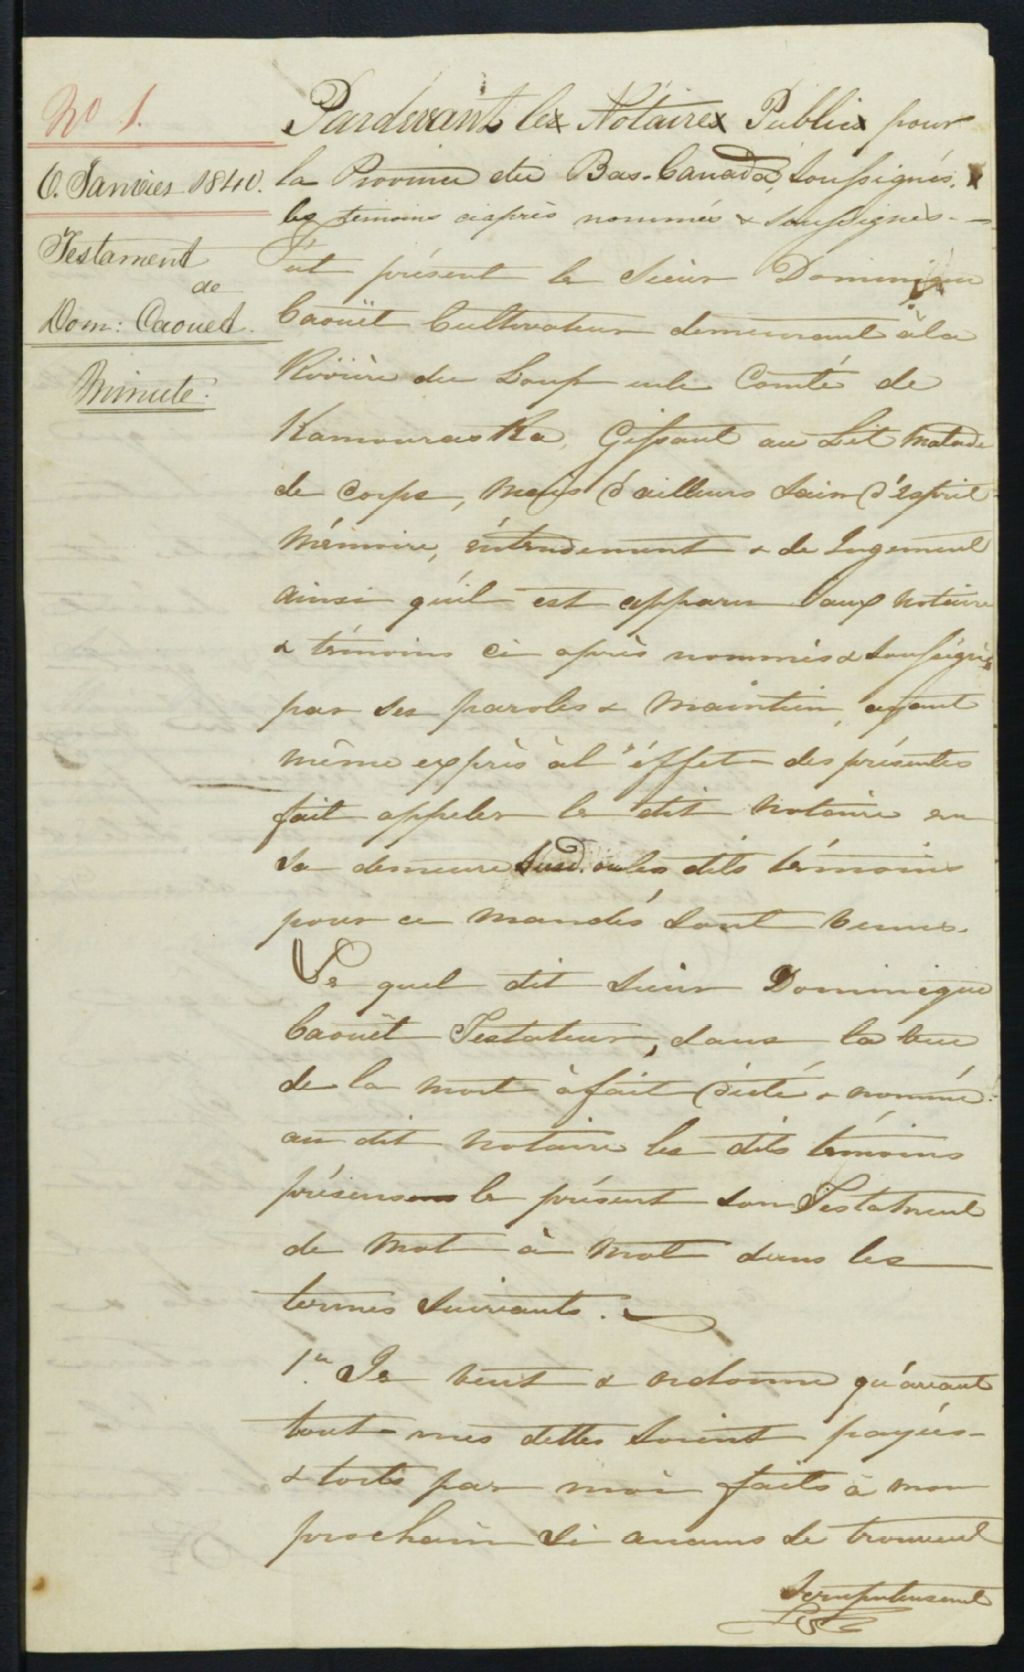 No 1.
6. Janvier 1840.
Testament
de
Dom: Caouet.
Minute.
Pardevant les Notaires Publics pour
la Province du Bas-Canada, Soussignés, &
les temoins ciaprès nommés & Soussignés.
Fût présent le Sieur Dominique
Caouët Cultivateur demeurant à la
Rivière du Loup en le Comté de
Kamouraska, Gissant au Lit malade
de corps, mais d'ailleurs sain d'esprit
Mémoire, éntendement & de Jugement
ainsi qu'il est apparu aux Notaire
& témoins ci après nommés & soussignés
par ses paroles & maintien, ayant
même exprès à l'éffet des présentes
fait appeler le dit Notaire en
sa demeure susd. où les dits témoins
pour ce mandés sont venus.
Le quel dit Sieur Dominique
Caouët Testateur, dans la vue
de la mort à fait dicté & nommé
au dit Notaire les dits témoins
présens le présent son Testament
de mot à mot dans les
termes suivants.
1nt Je veut & ordonne qu'avant
tout mes dettes soient payées
& torts par moi faits à mon
prochain si aucuns se trouvent